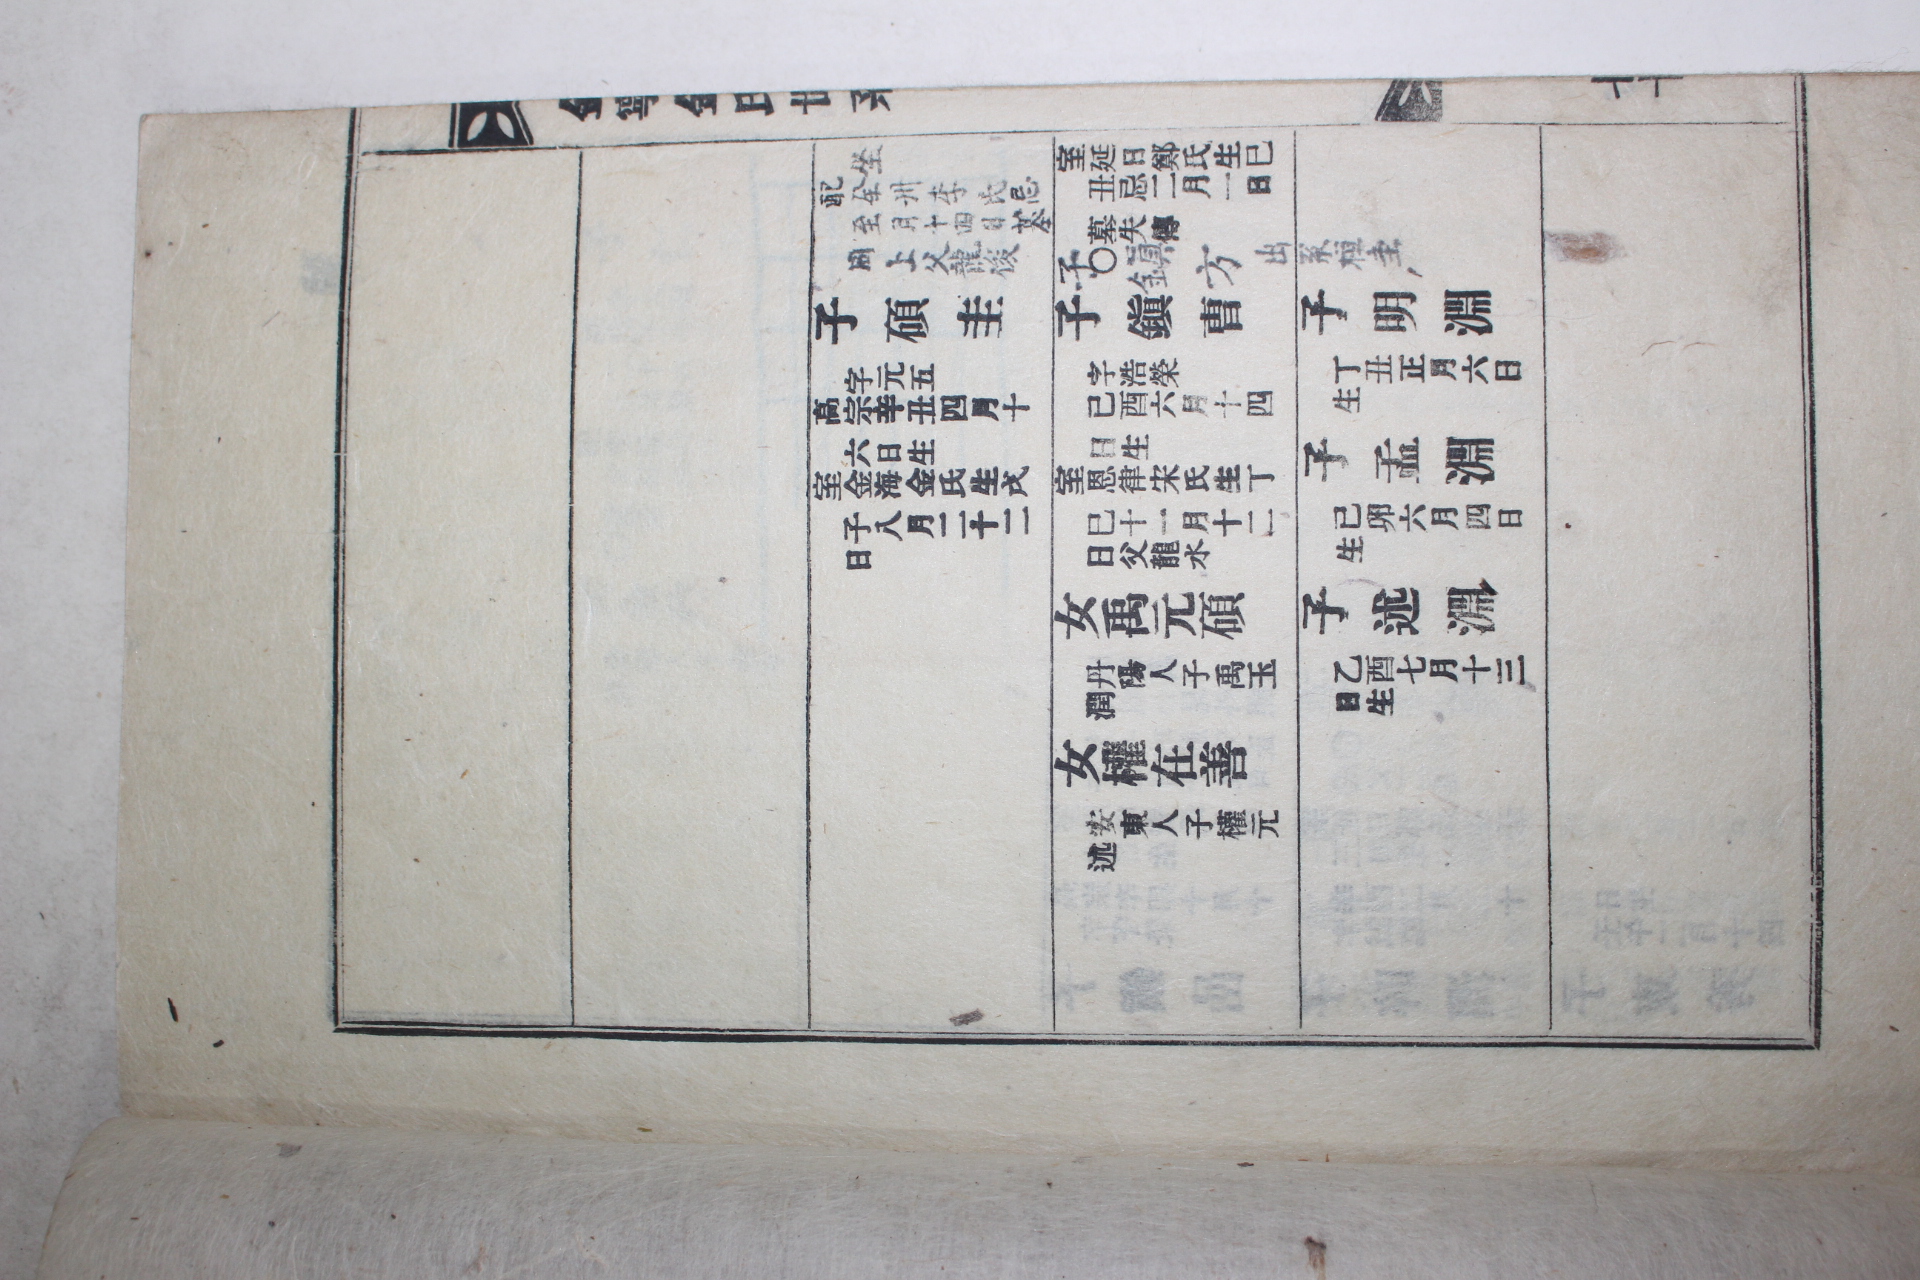 金寧金氏世系
坐
配全州李氏忌
至月十四日墓
同上父龍後
子碩圭
字元五
高宗辛丑四月十
六日生
室金海金氏生戊
子八月二十二
日
室延日鄭氏生巳
丑忌二月一日
墓失傳
子鎭方 出系桓圭
子鎭曹
字浩榮
已酉六月十四
日生
室恩律宋氏生丁
巳十一月十二
日父龍水
女禹元碩
丹陽人子禹玉
潤
女權在善
安東人子權元
述
子明淵
丁丑正月六日
生
子孟淵
已卯六月四日
生
子述淵
乙酉七月十三
日生